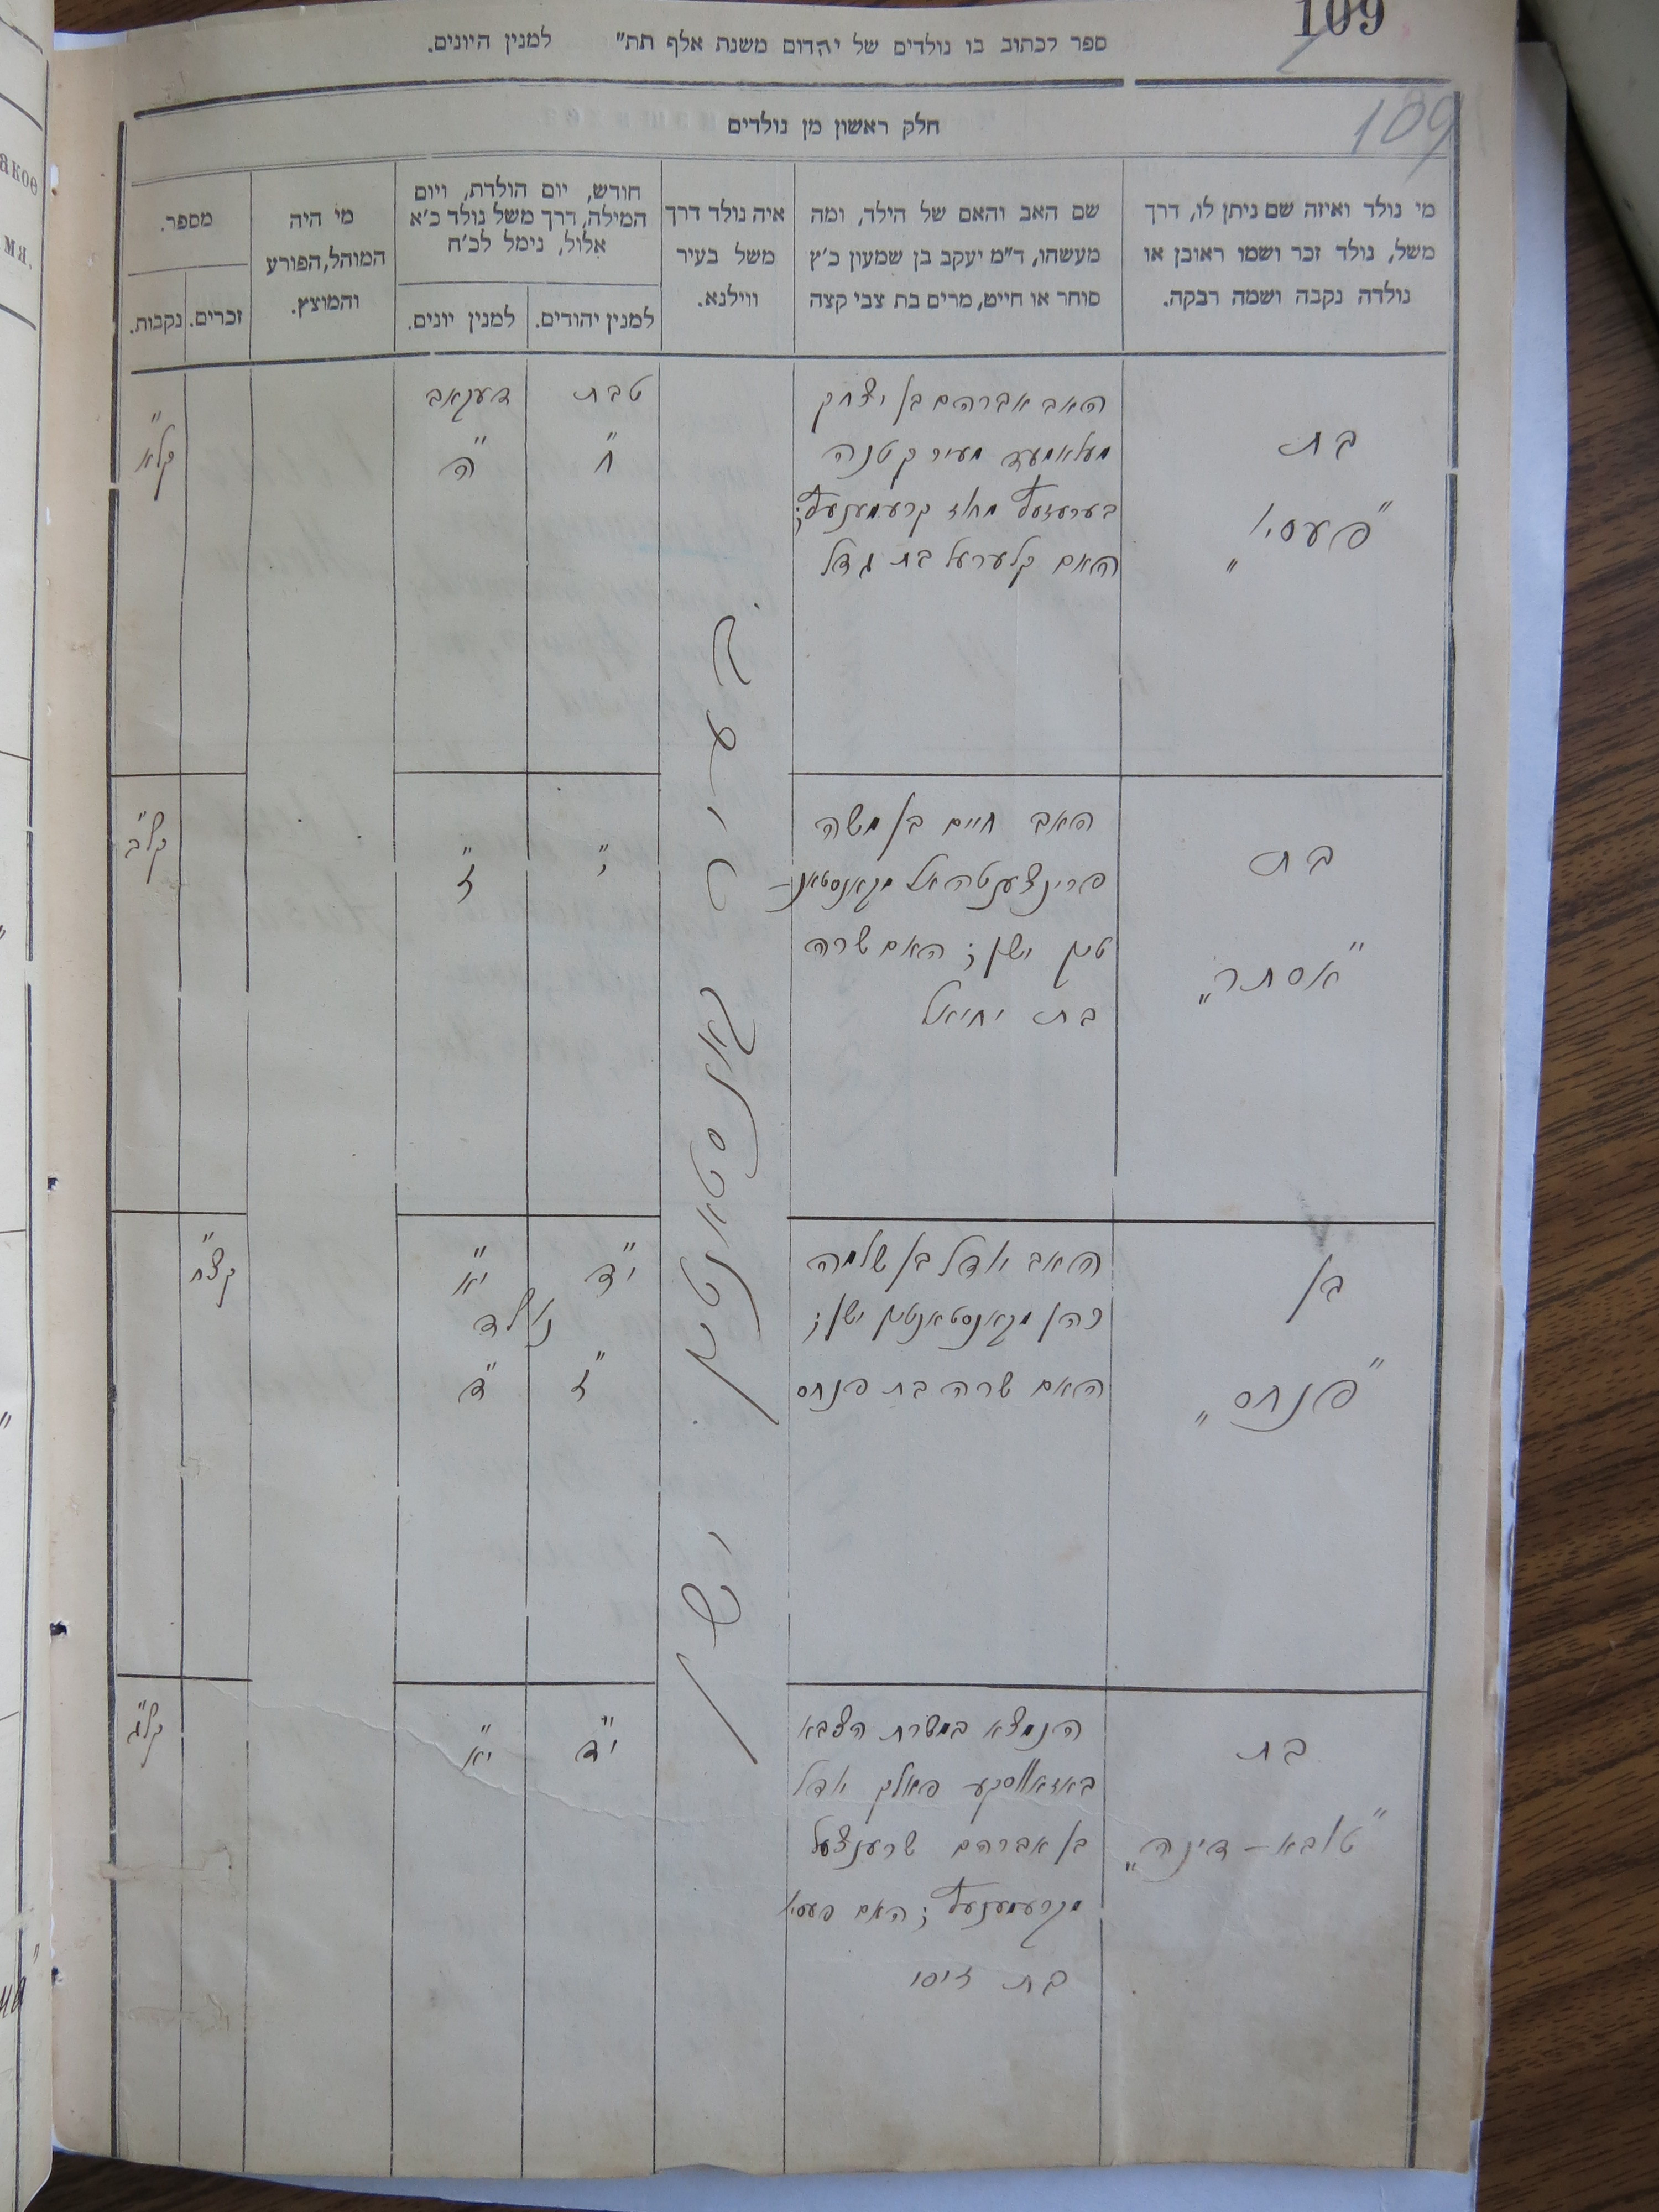 109
ספר לכתוב בו נולדים של יהדום משנת אלף תת״ למנין היונים.
109
חלק ראשון מן נולדים
מי נולד ואיזה שם ניתן לו, דרך
משל, נולד זכר ושמו ראובן או
נולדה נקבה ושמה רבקה.
שם האב והאם של הילד, ומה
מעשהו, ד״מ יעקב בן שמעון כ׳ץ
סוחר או חייט, מרים בת צבי קצה
איה נולד דרך
משל בעיר
ווילנא.
חודש, יום הולדת, ויום
המילה, דרך משל נולד כ׳א
אלול, נימל לכ׳ח
למנין יהודים.
למנין יונים.
מי היה
המוהל, הפורע
והמוצץ.
מספר.
זכרים.
נקבות.
בת
״פעסי״
האב אברהם בן יצחק
מעיר קטנה
האם קלערעל בת גדל
טבת
ח״
דעקאב
ה״
קל״א
בת
״אסתר״
האב חיים בן משה
מקאנסטאנ־
טין ישן; האם שרה
בת יחיאל
י״
ז״
קל״ב
בן
״פנחס״
האב יודל בן שלמה
כהן מקאנסטאנטין ישן;
האם שרה בת פנחס
י״ד
י״א
נולד
ז״
ד״
קצ״ח
בת
״טובא־דינה״
הנמצא במשרת הצבא
פאלק יודל
בן אברהם
האם פעסי
בת זיסי
י״ד
י״א
קל״ג
בעיר קאנסטאנטין ישן
акое
мя.